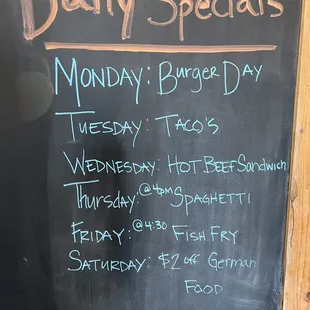 Daily Specials
Monday: Burger Day
Tuesday: Taco's
Wednesday: Hot Beef Sandwich
Thursday: @4pm Spaghetti
Friday: @4:30 Fish Fry
Saturday: $2 off German
Food